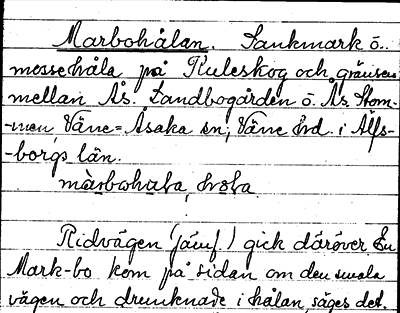 Marbohålan. Sankmark ö.
mossehåla på Kuleskog och gränsen
mellan Ås. Landbogården ö. Ås. Stom-
-men Väne-Åsaka sn; Väne hrd. i Älfs-
-borgs län.
màrbohala,
Ridvägen (jämf.) gick däröver. En
Mark-bo kom på sidan om den smala
vägen och drunknade i hålan, säges det.